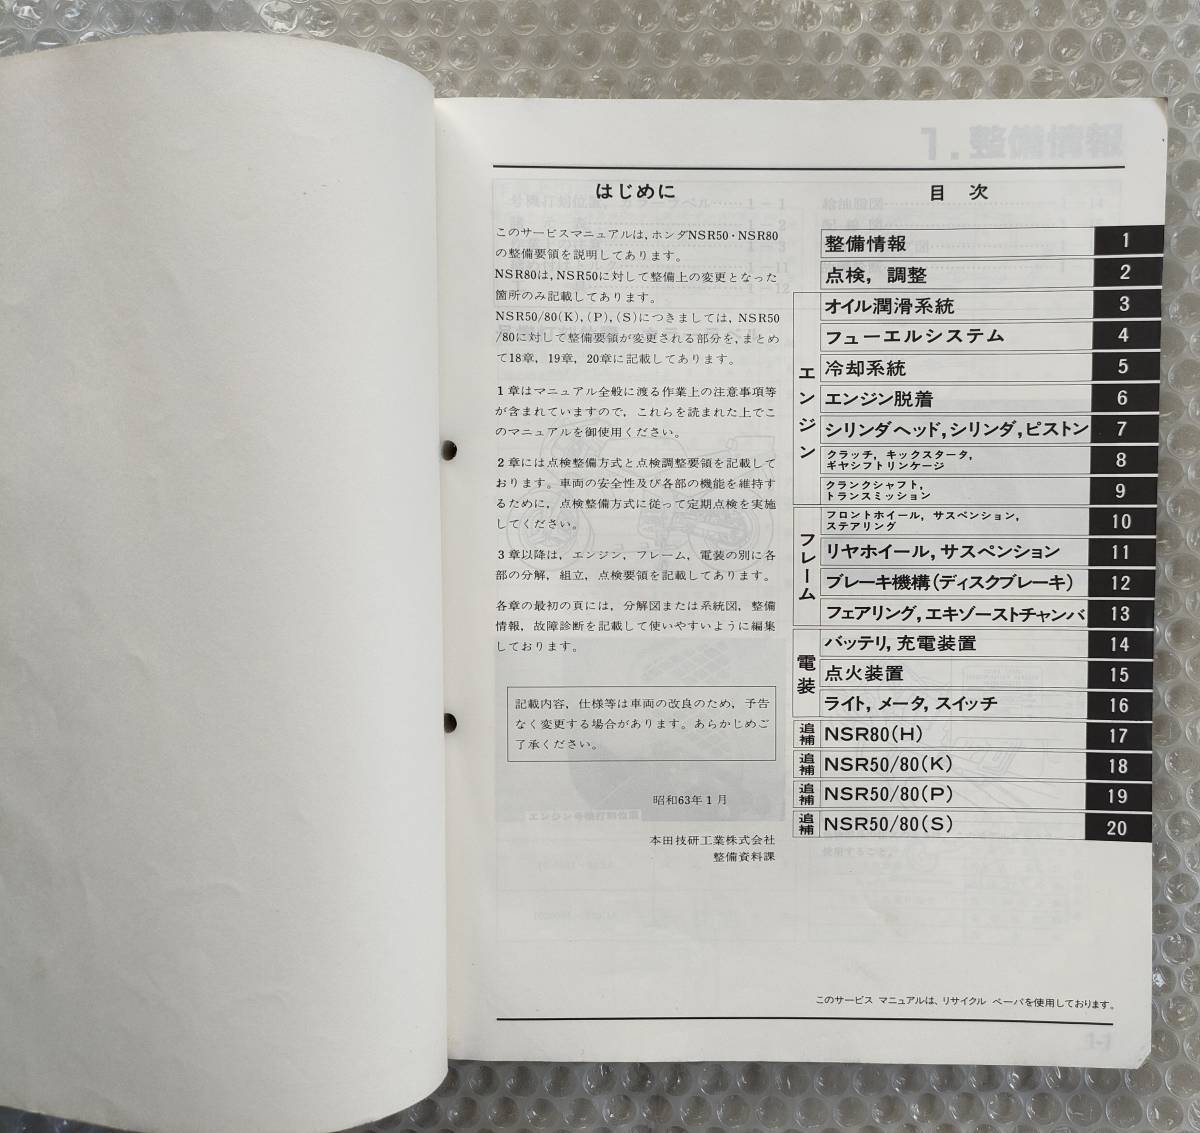 はじめに
このサービスマニュアルは，ホンダNSR50・NSR80
の整備要領を説明してあります。
NSR80は，NSR50に対して整備上の変更となった
箇所のみ記載してあります。
NSR50/80(K)，(P)，(S)につきましては，NSR50
/80に対して整備要領が変更される部分を，まとめ
て18章，19章，20章に記載してあります。
1章はマニュアル全般に渡る作業上の注意事項等
が含まれていますので，これらを読まれた上でこ
のマニュアルを御使用ください。
2章には点検整備方式と点検調整要領を記載して
おります。車両の安全性及び各部の機能を維持す
るために，点検整備方式に従って定期点検を実施
してください。
3章以降は，エンジン，フレーム，電装の別に各
部の分解，組立，点検要領を記載してあります。
各章の最初の頁には，分解図または系統図，整備
情報，故障診断を記載して使いやすいように編集
しております。
記載内容，仕様等は車両の改良のため，予告
なく変更する場合があります。あらかじめご
了承ください。
昭和63年1月
本田技研工業株式会社
整備資料課
目 次
整備情報 1
点検，調整 2
エンジン
オイル潤滑系統 3
フューエルシステム 4
冷却系統 5
エンジン脱着 6
シリンダヘッド，シリンダ，ピストン 7
クラッチ，キックスタータ，
ギヤシフトリンケージ 8
クランクシャフト，
トランスミッション 9
フレーム
フロントホイール，サスペンション，
ステアリング 10
リヤホイール，サスペンション 11
ブレーキ機構(ディスクブレーキ) 12
フェアリング，エキゾーストチャンバ 13
電装
バッテリ，充電装置 14
点火装置 15
ライト，メータ，スイッチ 16
追補 NSR80(H) 17
追補 NSR50/80(K) 18
追補 NSR50/80(P) 19
追補 NSR50/80(S) 20
このサービス マニュアルは、リサイクル ペーパを使用しております。
1. 整備情報
1-1